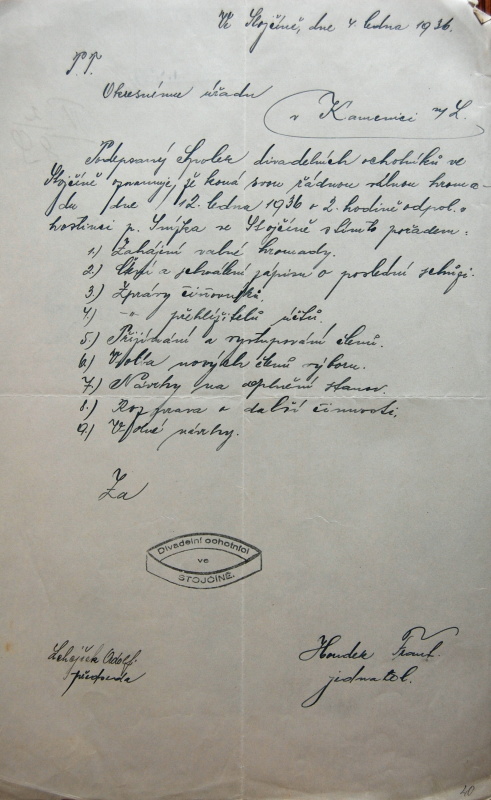 Ve Stojčíně, dne 4. ledna 1936.
P.T.
Okresnímu úřadu
v Kamenici n/L.
Podepsaný Spolek divadelních ochotníků ve
Stojčíně oznamuje, že koná svou řádnou valnou hroma-
du dne 12. ledna 1936 o 2. hodině odpol. v
hostinci p. ve Stojčíně s tímto pořadem:
1.) Zahájení valné hromady.
2.) Čtení a schválení zápisu o poslední schůzi.
3.) Zprávy činovníků.
4.) -"- přehlížitelů účtů.
5.) Přijímání a vystupování členů.
6.) Volba nových členů výboru.
7.) Návrhy na doplnění stanov.
8.) Rozprava o další činnosti.
9.) Volné návrhy.
Za
Divadelní ochotníci
ve
STOJČÍNĚ.
Adolf.
předseda
Houdek Frant.
jednatel.
40